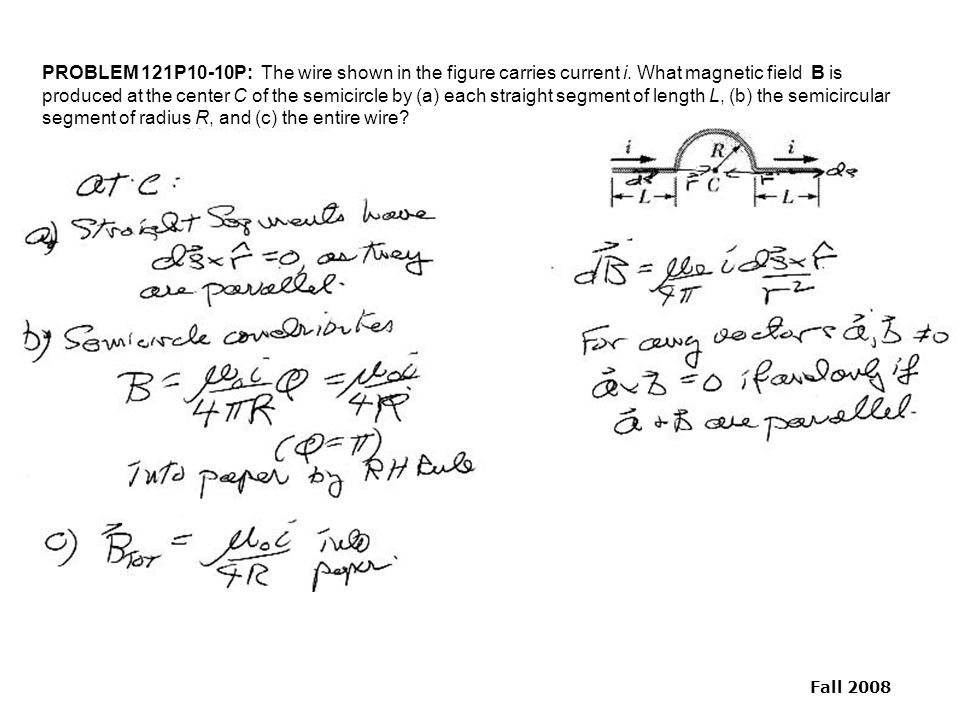 PROBLEM 121P10-10P: The wire shown in the figure carries current i. What magnetic field B is
produced at the center C of the semicircle by (a) each straight segment of length L, (b) the semicircular
segment of radius R, and (c) the entire wire?
i R i
ds r C r ds
L L
at C:
a) Straight Segments have
ds⃗ × r̂ = 0, as they
are parallel.
dB⃗ = μ₀/4π i ds⃗ × r̂/r²
b) Semicircle contributes
B = μ₀i/4πR Φ = μ₀i/4R
(Φ = π)
into paper by RH Rule
For any vectors a⃗, b⃗ ≠ 0
a⃗ × b⃗ = 0 if and only if
a⃗ + b⃗ are parallel.
c) B⃗TOT = μ₀i/4R into
paper.
Fall 2008